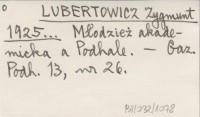 LUBERTOWICZ Zygmunt
1925... Młodzież akade-
micka a Podhale. – Gaz.
Podh. 13, nr 26.
BJ/232/1078